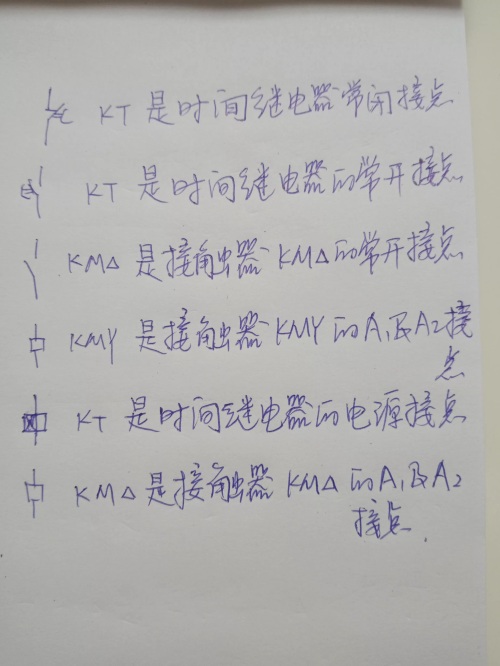 KT 是时间继电器常闭接点
KT 是时间继电器的常开接点
KM△ 是接触器 KM△的常开接点
KMY 是接触器 KMY 的A1及A2接
点
KT 是时间继电器的电源接点
KM△是接触器 KM△ 的A1及A2
接点.